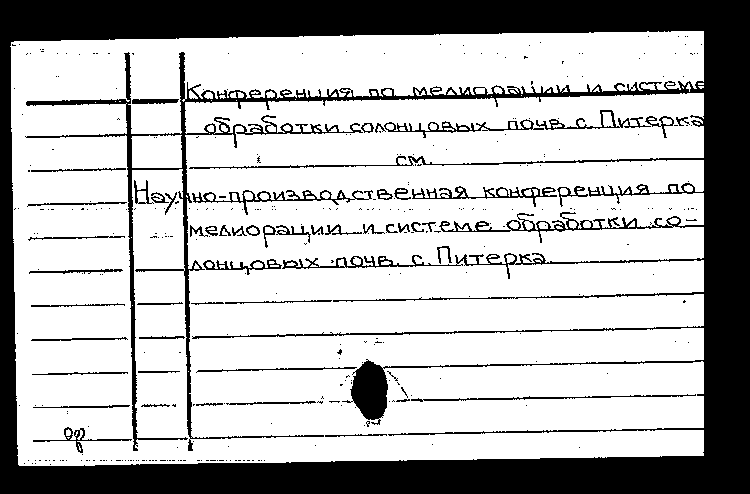 Конференция по мелиорации и системе
обработки солонцовых почв с. Питерка
см.
Научно-производственная конференция по
мелиорации и системе обработки со-
лонцовых почв с. Питерка.
ор